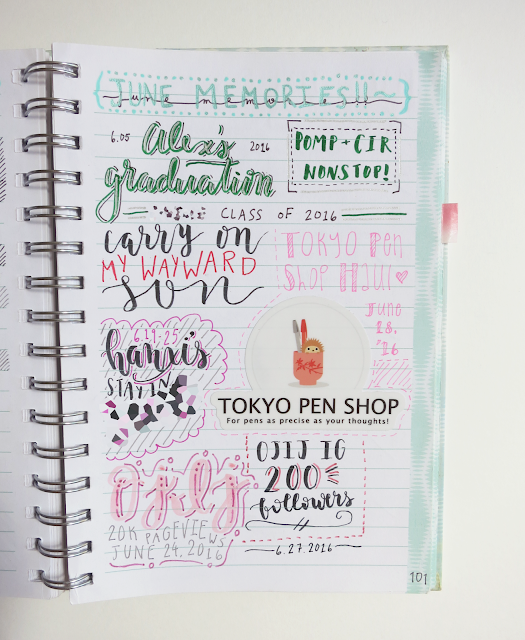 JUNE MEMORIES!!~
june memories!!
6.05 Alex's 2016
graduation
POMP + CIR
NONSTOP!
CLASS OF 2016
carry on
MY WAYWARD
son
TOKYO PEN
SHOP HAUL
JUNE
18,
'16
6.19-25
hanxi's
STAY IN
TOKYO PEN SHOP
For pens as precise as your thoughts!
ojlj
20K PAGEVIEWS
JUNE 24, 2016
OJLJ IG
200
followers
6.27.2016
101